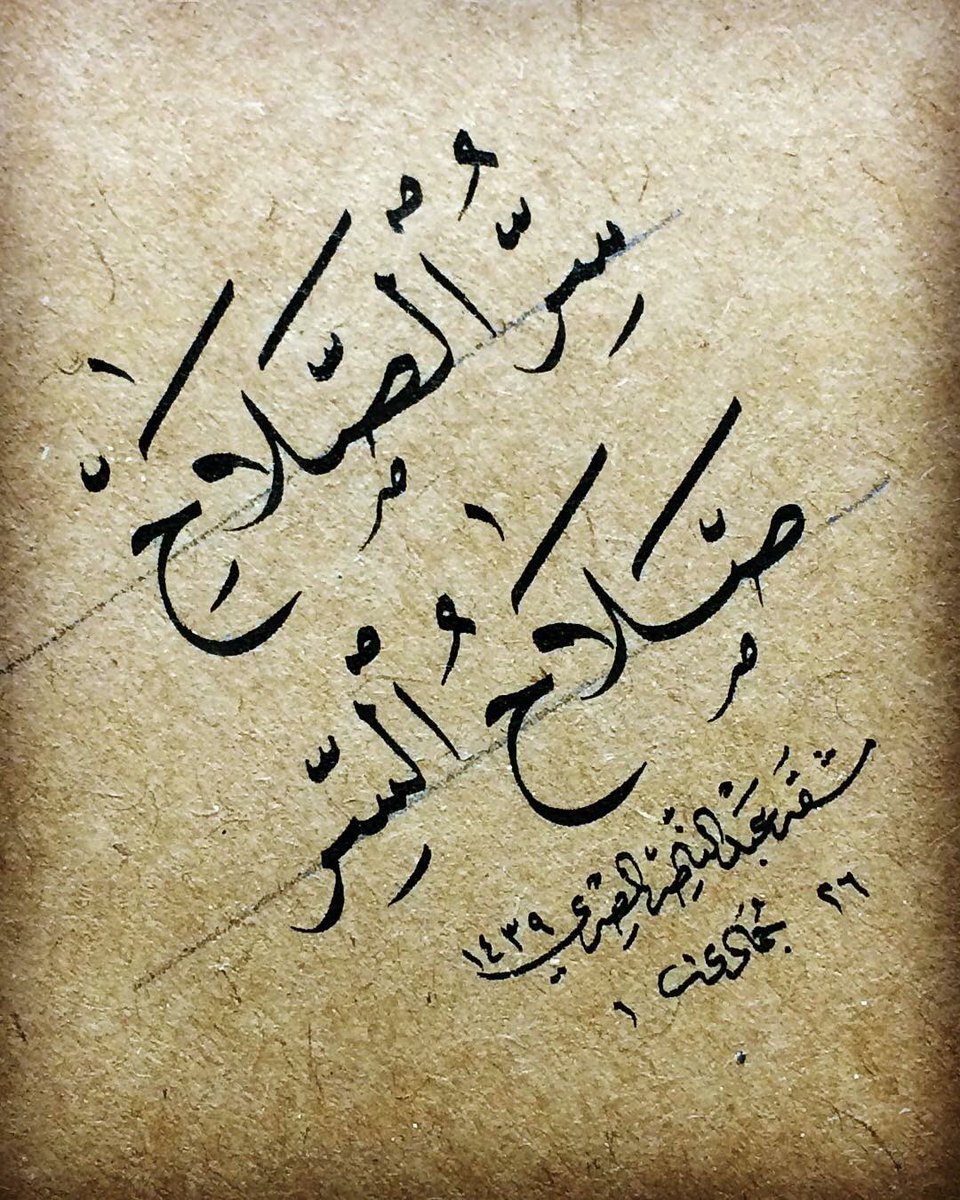 سِرُّ الصَّلَاحِ
صَلَاحُ السِّرِّ
مشقه عبد الناصر المصري ١٤٣٩
٢٦ جمادى ١